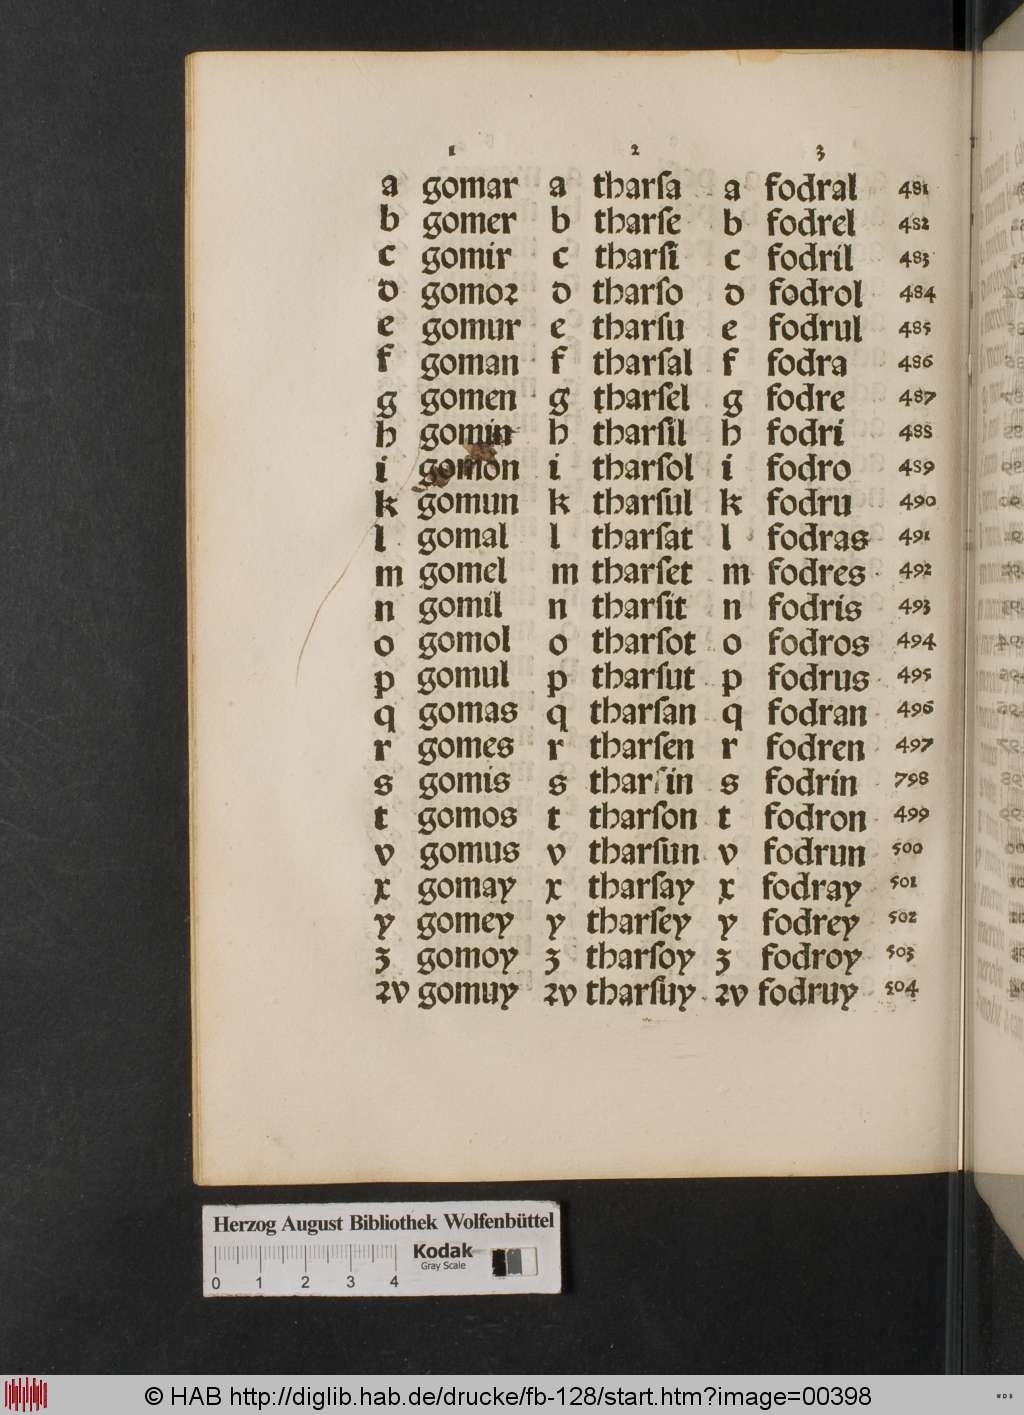 1 2 3
a gomar a tharſa a fodral 481
b gomer b tharſe b fodrel 482
c gomir c tharſi c fodril 483
d gomoꝛ d tharſo d fodrol 484
e gomur e tharſu e fodrul 485
f goman f tharſal f fodra 486
g gomen g tharſel g fodre 487
h gomin h tharſil h fodri 488
i gomon i tharſol i fodro 489
k gomun k tharſul k fodru 490
l gomal l tharſat l fodras 491
m gomel m tharſet m fodres 492
n gomil n tharſit n fodris 493
o gomol o tharſot o fodros 494
p gomul p tharſut p fodrus 495
q gomas q tharſan q fodran 496
r gomes r tharſen r fodren 497
s gomis s tharſin s fodrin 798
t gomos t tharſon t fodron 499
v gomus v tharſun v fodrun 500
x gomay x tharſay x fodray 501
y gomey y tharſey y fodrey 502
ʒ gomoy ʒ tharſoy ʒ fodroy 503
ꝛv gomuy ꝛv tharſuy ꝛv fodruy 504
Herzog August Bibliothek Wolfenbüttel
Kodak
Gray Scale
0 1 2 3 4
© HAB http://diglib.hab.de/drucke/fb-128/start.htm?image=00398